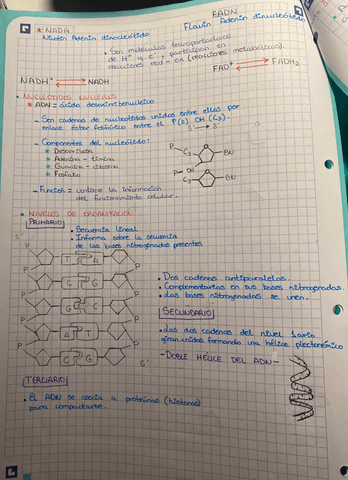 FADN
* NADH
Nicotin Adenin dinucleótido
Flavin Adenin dinucleótido
• Son moléculas transportadoras
de H⁺ y e⁻, participan en
reacciones red-ox (reacciones metabólicas).
NADH⁺ NADH
FAD⁺ FADH₂
• NUCLEÓTIDOS NUCLEICOS
* ADN = ácido desoxirribonucleico
- Son cadenas de nucleótidos unidos entre ellos por
enlace éster fosfórico entre el P(5) OH (C3).
5' 3'
- Componentes del nucleótido:
* Desoxirribosa
* Adenina - timina
* Guanina - citosina
* Fosfato
P C3 BN
P OH C3 BN
- Función = contiene la información
del funcionamiento celular.
• NIVELES DE ORGANIZACIÓN
PRIMARIO
• Secuencia lineal
• Informa sobre la secuencia
de las bases nitrogenadas presentes
5'
P T A P
P C G P
P G C P
P A T P
P C G P
5'
• Dos cadenas antiparalelas.
• Complementarias en sus bases nitrogenadas.
• Las bases nitrogenadas se unen.
SECUNDARIO
• Las dos cadenas del nivel 1ario
giran unidas formando una hélice plectonémica
- DOBLE HÉLICE DEL ADN -
TERCIARIO
• EL ADN se asocia a proteínas (histonas)
para compactarse.